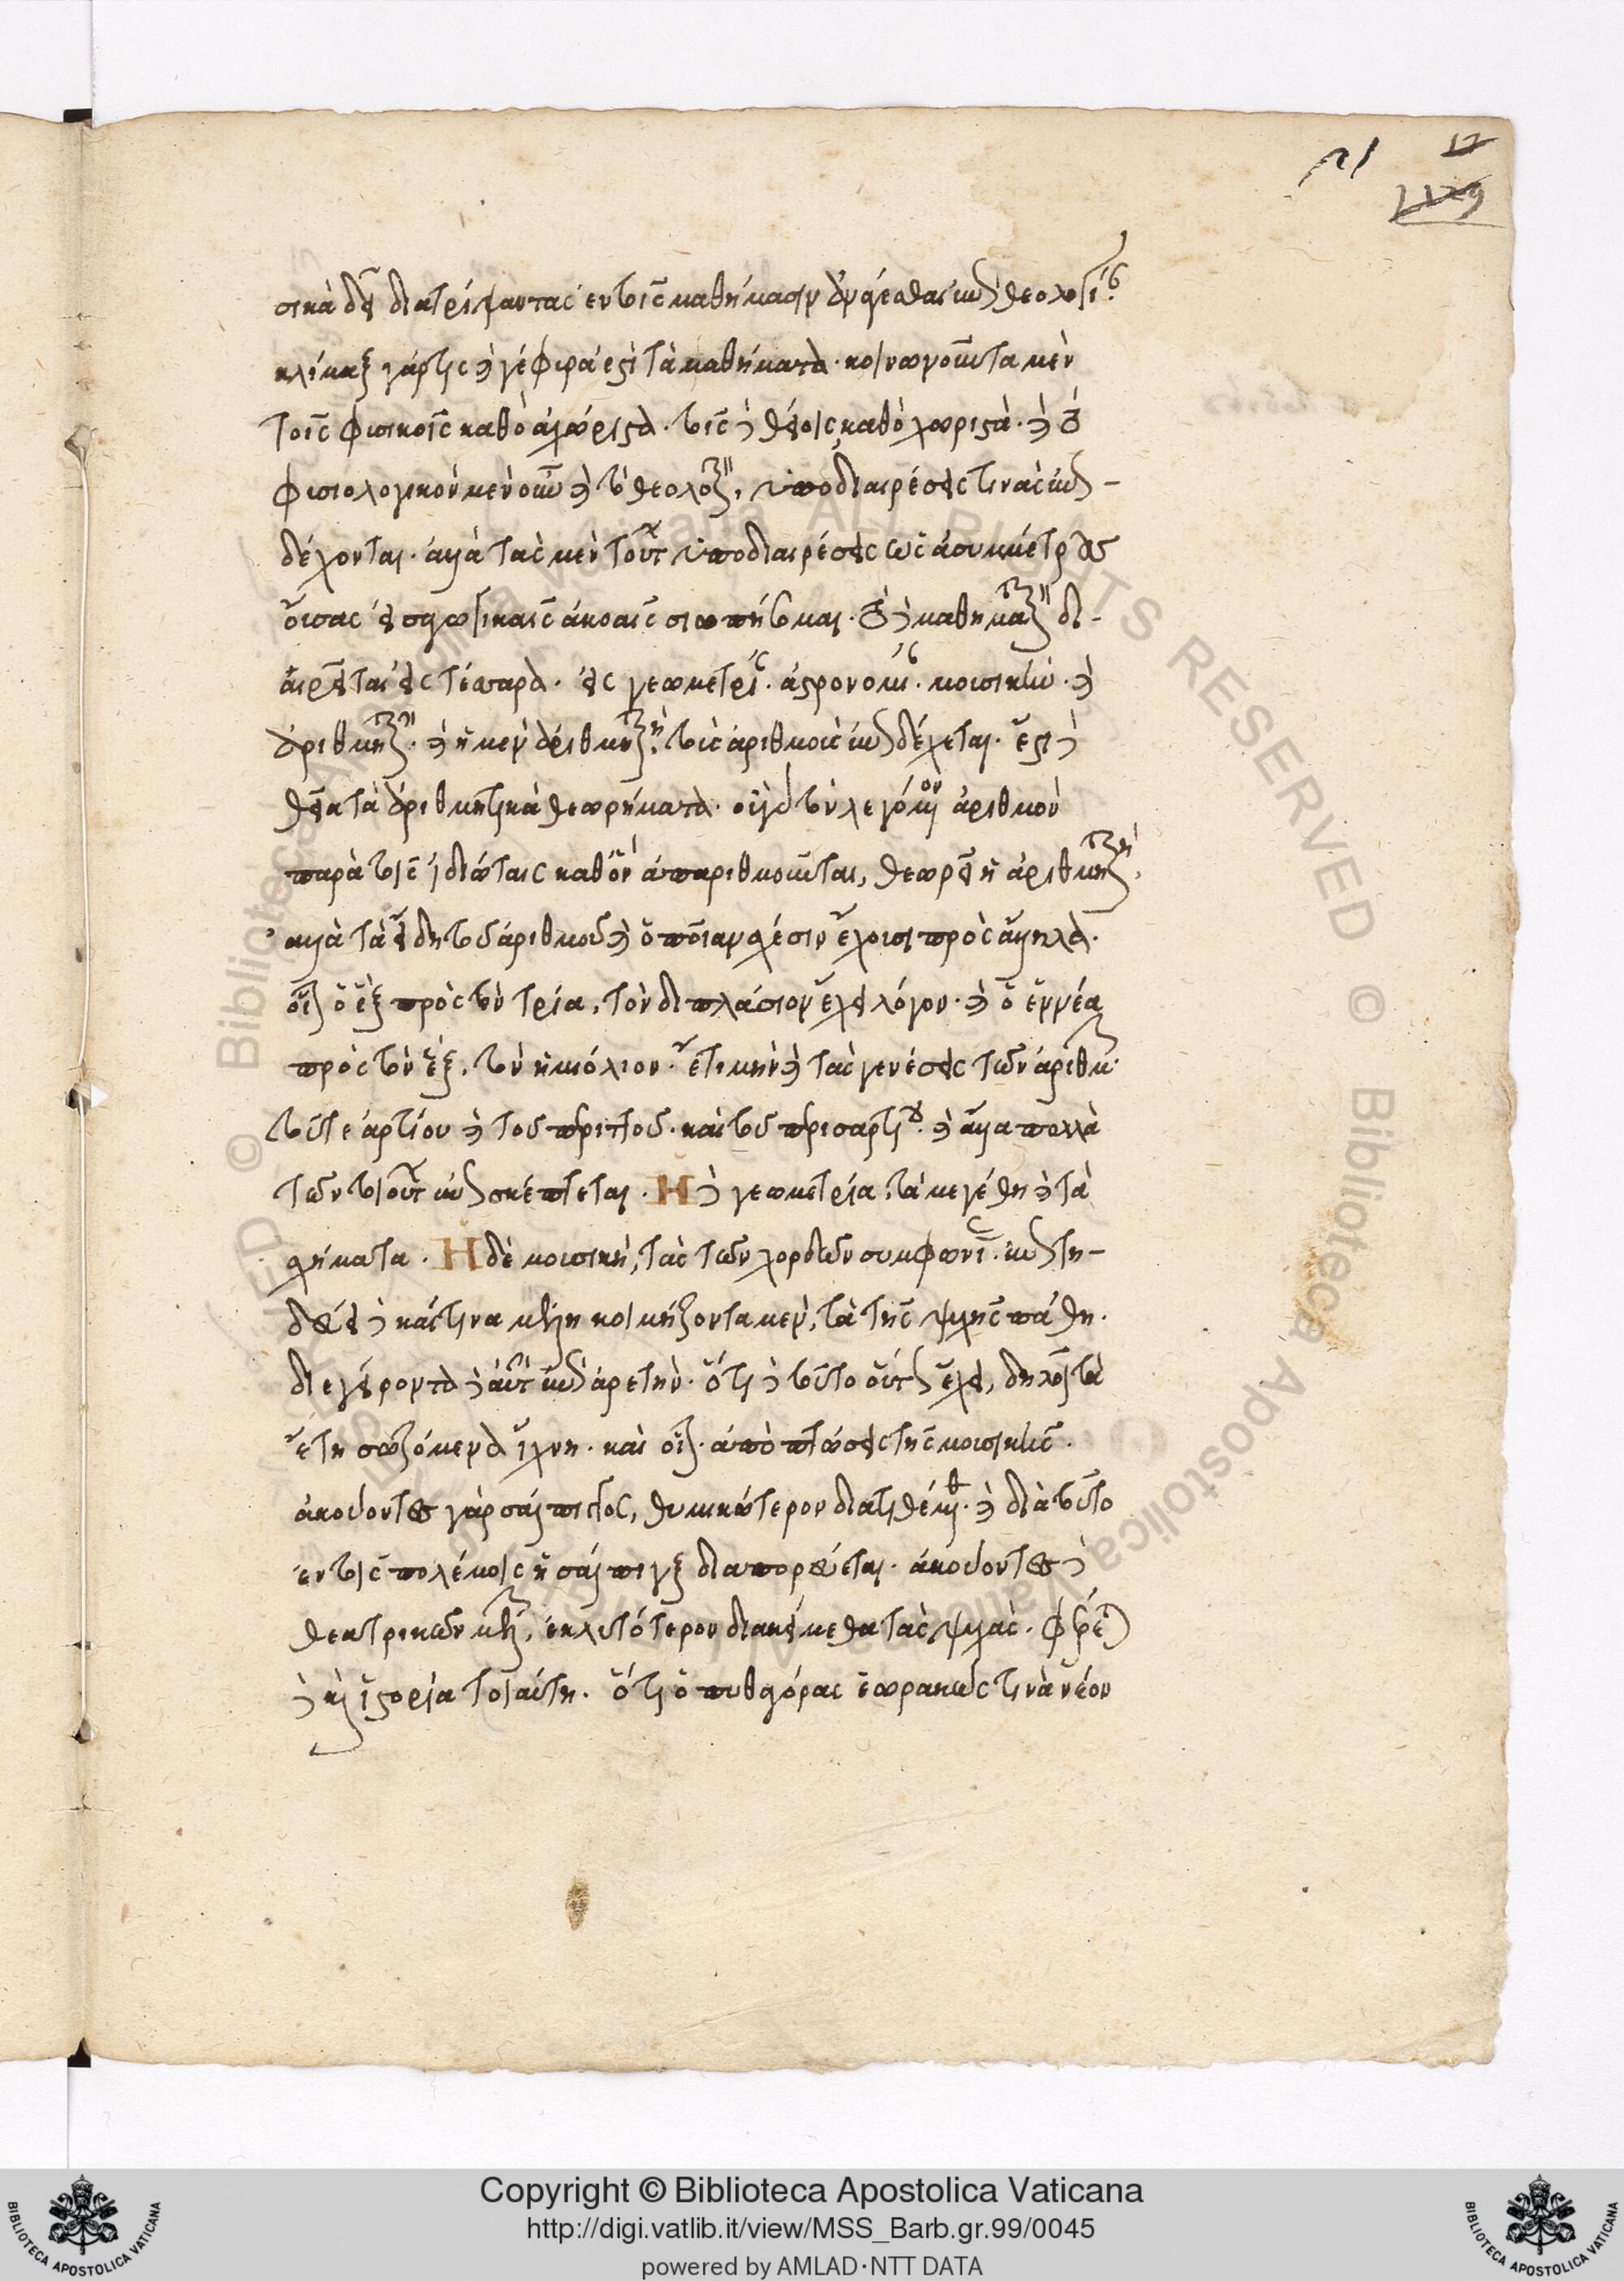 σικὰ δεῖ διατρίψαντας ἐν τοῖς μαθήμασιν ἀνάγεσθαι ἐν θεολογίας
κλίμαξ γάρ τις καὶ γέφυρά ἐστι τὰ μαθήματα· κοινωνοῦντα μὲν
τοῖς φυσικοῖς καθὸ ἀχώριστα· τοῖς δὲ θείοις καθὸ χωριστά· καὶ τὸ
φυσιολογικὸν μὲν οὖν καὶ τὸ θεολογικὸν, ὑποδιαιρέσεις τινὰς ἐν-
δέχονται· ἀλλὰ τὰς μὲν τούτων ὑποδιαιρέσεις ὡς ἀσυμμέτρους
οὔσας εἰσαγωγικαῖς ἀκοαῖς σιωπήσωμαι· τὸ δὲ μαθηματικὸν δι-
αιρεῖται εἰς τέσσαρα· εἰς γεωμετρίαν· ἀστρονομίαν· μουσικήν· καὶ
ἀριθμητικήν· καὶ ἡ μὲν ἀριθμητικὴ τοῖς ἀριθμοῖς ἐνδέχεται· ἔστι δὲ
θεῖα τὰ ἀριθμητικὰ θεωρήματα· οὐ γὰρ τὸν λεγόμενον ἀριθμὸν
παρὰ τοῖς ἰδιώταις καθ' ὃν ἀπαριθμοῦνται, θεωρεῖ ἡ ἀριθμητικὴ
ἀλλὰ τὰ εἴδη τοῦ ἀριθμοῦ καὶ ὁποίαν σχέσιν ἔχουσι πρὸς ἄλληλα·
οἷον ὁ ἓξ πρὸς τὸν τρία, τὸν διπλάσιον ἔχει λόγον· καὶ ὁ ἐννέα
πρὸς τὸν ἕξ, τὸν ἡμιόλιον· ἔτι μὴν καὶ τὰς γενέσεις τῶν ἀριθμῶν
τοῦ τε ἀρτίου καὶ τοῦ περιττοῦ· καὶ τοῦ περισσαρτίου· καὶ ἄλλα πολλὰ
τῶν τοιούτων ἐνσκέπτεται· Ἡ δὲ γεωμετρία τὰ μεγέθη καὶ τὰ
σχήματα· Ἡ δὲ μουσικὴ, τὰς τῶν χορδῶν συμφωνίας· ἐντη-
δεύει δὲ καί τινα μέλη κοιμίζοντα μὲν, τὰ τῆς ψυχῆς πάθη·
διεγείροντα δὲ αὐτὴν ἐν ἀρετήν· ὅτι δὲ τοῦτο οὕτως ἔχει, δηλοῖ τὰ
ἔτη σωζόμενα ἴχνη· καὶ οἷον· ἀπὸ πτώσεις τῆς μουσικῆς·
ἀκούοντες γὰρ σάλπιγγος, θυμικώτερον διατιθέμεθα· καὶ διὰ τοῦτο
ἐν τοῖς πολέμοις ἡ σάλπιγξ διαπορεύεται· ἀκούοντες δὲ
θεατρικῶν μελῶν, ἐκλυτότερον διακείμεθα τὰς ψυχάς· φέρεται
δὲ καὶ ἱστορία τοιαύτη· ὅτι ὁ πυθαγόρας ἑωρακώς τινα νέον